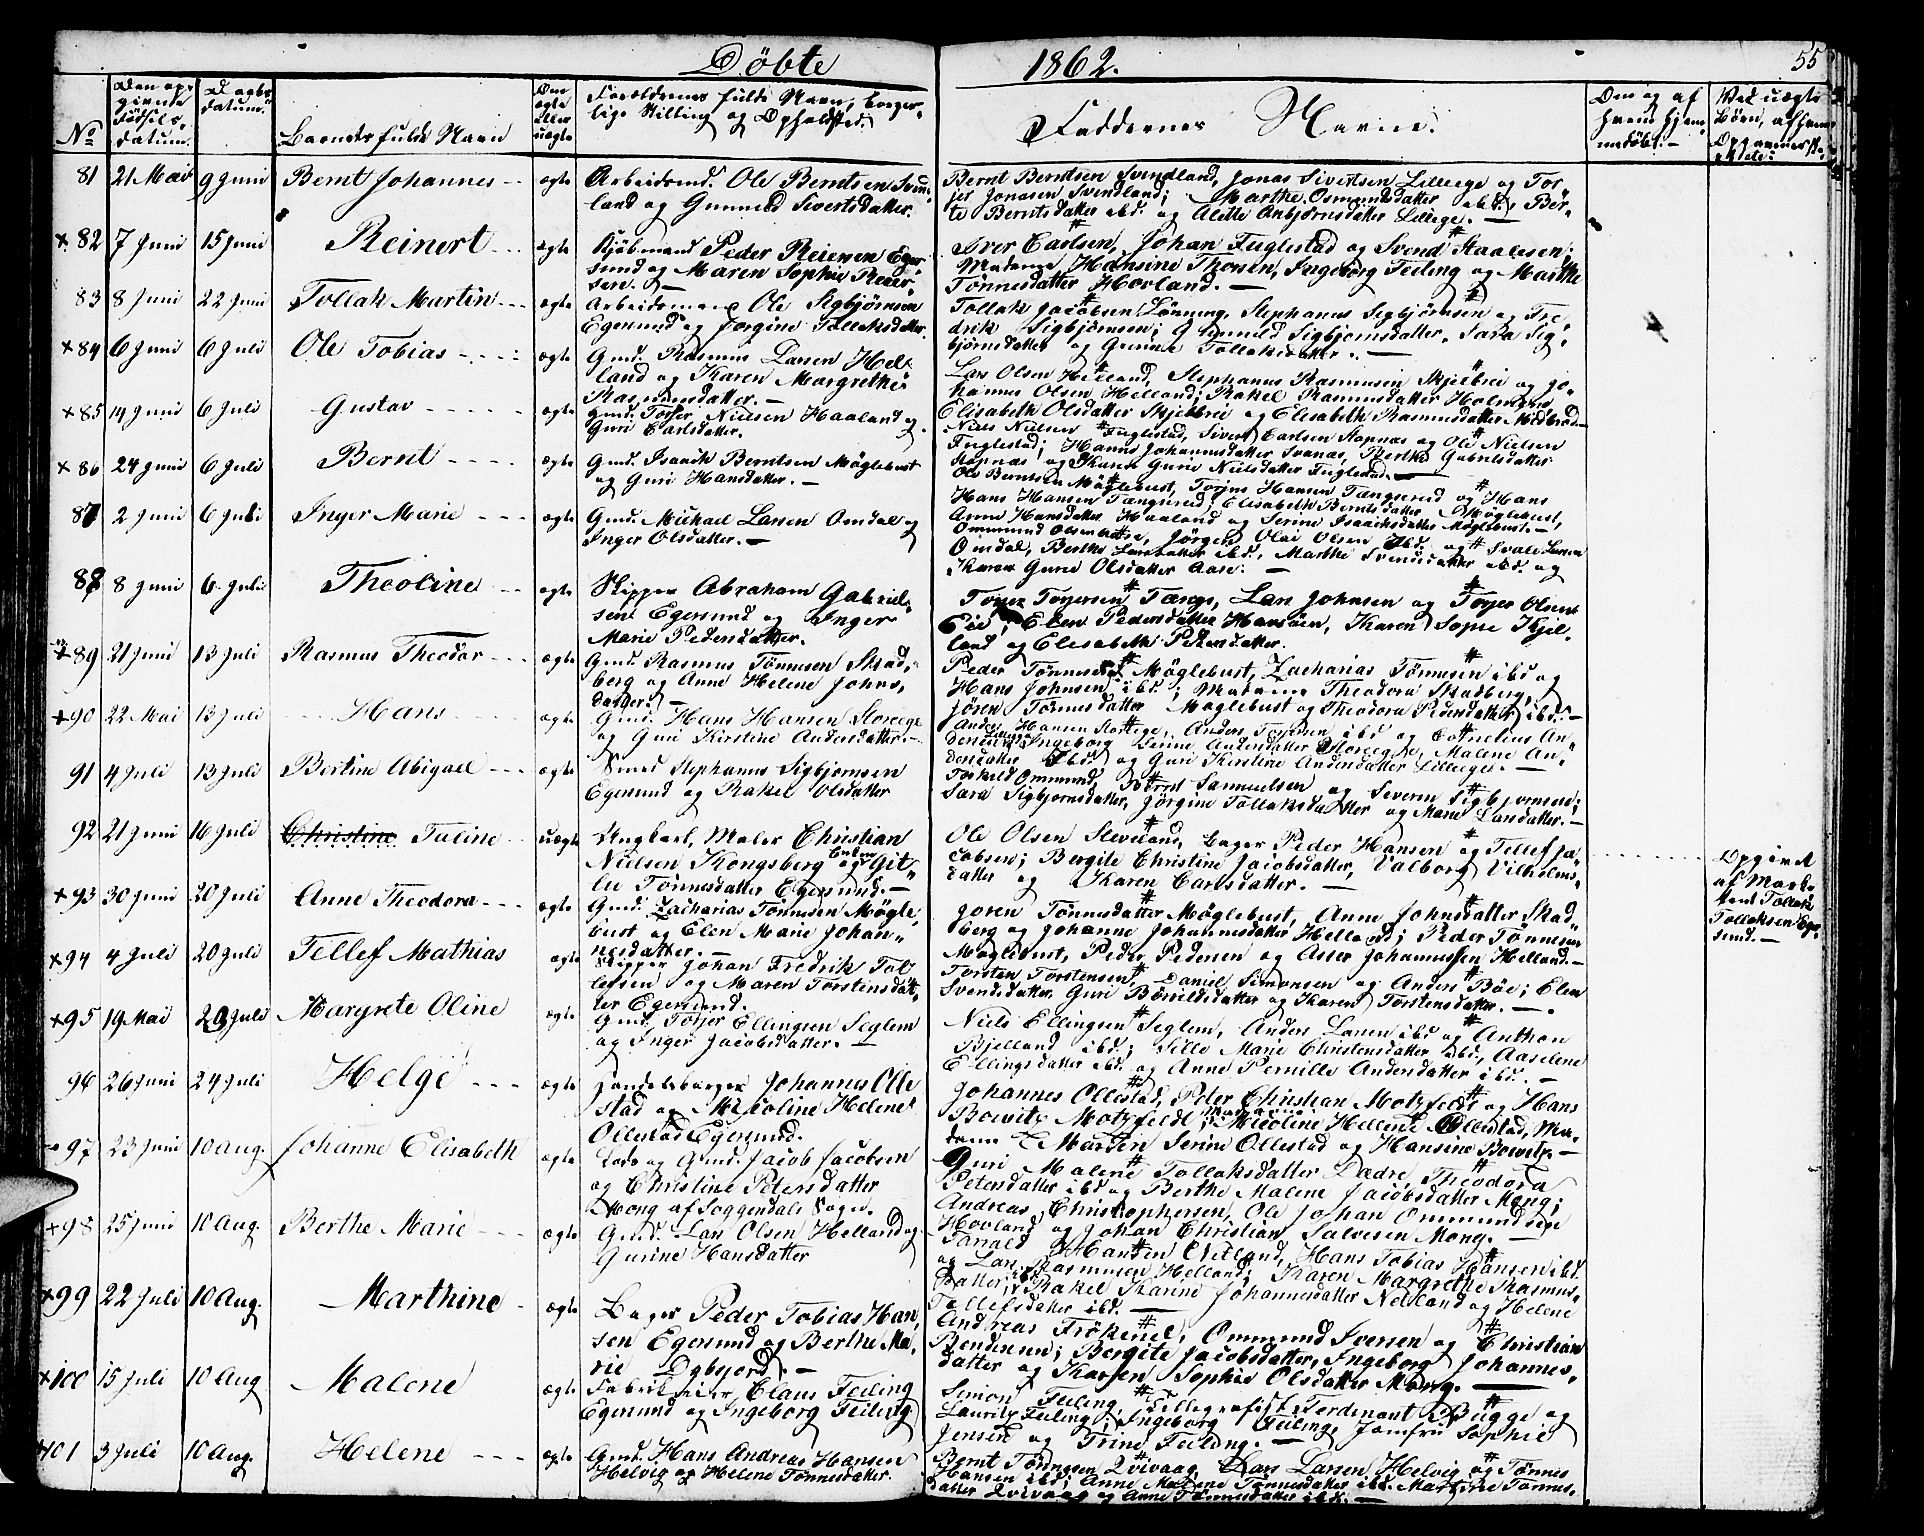 Døbte 1862. 55
No
Den op-
givende
Fødsels-
datum.
Daabs-
datum.
Barnets fulde Navn
Om
ægte
eller
uægte
Forældrenes fulde Navn, borger-
lige Stilling og Opholdsted.
Faddernes Navne.
Om og af
hvem hjem-
medøbt.
Ved uægte
Børn, af hvem
81 21 Mai 9 Juni Bernt Johannes ægte Arbeidsmd. Ole Berntsen Svin-
land og Gunnild Sivertsdatter.
Bernt Berntsen Svindland, Jonas Sivertsen Lilleege og Tor-
jes Jonasen Svindland; Marthe Osmundsdatter ibd. Ber-
te Berntsdatter ibd. og Alette Asbjørnsdatter Lillege.
82 7 Juni 15 Juni Reinert ægte Kjøbmand Peder Reiersen Eger-
sund og Maren Sophie Reier-
sen.
Iver Carlsen, Johan Fuglestad og Svend Staalesen;
Madame Hansine Thorsen, Ingeborg Feiling og Marthe
Tønnesdatter Hovland.
83 8 Juni 22 Juni Tollak Martin ægte Arbeidsmand Ole Sigbjørnsen
Egersund og Jørgine Tollaksdatter.
Tollak Jacobsen Lønning, Stephanus Sigbjørnsen og Fre-
drik Sigbjørnsen; Gunnild Sigbjørnsdatter, Sara Sig-
bjørnsdatter og Gunine Tollaksdatter.
84 6 Juni 6 Juli Ole Tobias ægte Gmd. Rasmus Larsen Hel-
land og Karen Margrethe
Rasmusdatter.
Lars Olsen Helland, Stephanus Rasmusen Skjelbrei og Jo-
hannes Olsen Helland; Rakel Rasmusdatter Holmen,
Elisabeth Olsdatter Skjelbrei og Elisabeth Rasmusdatter Midbrød
85 14 Juni 6 Juli Gustav ægte Gmd. Torjer Nielsen Haaland og
Guri Carlsdatter.
Niels Nielsen Fuglestad, Sivert Carlsen Stapnæs og Ole Nielsen
Fuglestad; Hanne Johannesdatter Svanæs, Berthe Gabrielsdatter
Stapnæs og Karen Gurie Nielsdatter Fuglestad.
86 24 Juni 6 Juli Bernt ægte Gmd. Isaack Berntsen Møglebust
og Guri Hansdatter.
Ole Berntsen Møglebust, Torjus Hansen Tængsrud og Hans
Hans Hansen Tængsrud; Elisabeth Berntsdatter Møglebust,
Anne Hansdatter Haaland og Serine Isaacksdatter Møglebust.
87 2 Juni 6 Juli Inger Marie ægte Gmd. Michael Larsen Omdal og
Inger Olsdatter.
Ommund Olsen Aase, Jørgen Olai Olsen ibd. og Svale Larsen
Omdal, Berthe Larsdatter ibd., Marthe Svendsdatter ibd. og
Karen Gurie Olsdatter Aase.
88 8 Juni 6 Juli Theoline ægte Skipper Abraham Gabriel-
sen Egersund og Inger
Marie Pedersdatter.
Torjer Torjersen Tængs, Lars Johnsen og Torjer Olsen
Eie; Elen Pedersdatter Hansen, Karen Sopie Kjel-
land og Elisabeth Petersdatter.
89 21 Juni 13 Juli Rasmus Theodor ægte Gmd. Rasmus Tønnesen Skad-
berg og Anne Helene Johns-
datter.
Peder Tønnesen Møglebust, Zacharias Tønnesen ibd og
Hans Johnsen ibd.; Madame Theodora Skadberg,
Jøren Tønnesdatter Møglebust og Theodora Pedersdatter ibd.
90 22 Mai 13 Juli Hans ægte Gmd. Hans Hansen Storeege
og Guri Kirstine Andersdatter.
Anders Hansen Storeege, Anders Torjersen ibd og Cornelius An-
dersen Lilleege; Ingeborg Serine Andersdatter Storeege, Malene An-
dersdatter ibd. og Guri Kirstine Andersdatter Lilleege.
91 4 Juli 13 Juli Bertine Abigael ægte Smed Stephanus Sigbjørnsen
Egersund og Rakel Olsdatter
Torkild Ommund, Bernt Samuelsen og Severin Sigbjørnsen;
Sara Sigbjørnsdatter, Jørgine Tollaksdatter og Marie Larsdatter.
92 21 Juni 16 Juli Christine Taline uægte Ungkarl, Maler Christian
Nielsen Kongsberg og Enken Git-
le Tønnesdatter Egersund.
Ole Olsen Sleveland, Bager Peder Hansen og Tellef Ja-
cobsen; Bergite Christine Jacobsdatter, Valborg Vilhelms-
datter og Karen Carlsdatter.
Opgivet
af
Tollak
Tollaksen Eger-
sund.
93 30 Juni 20 Juli Anne Theodora ægte Gmd. Zacharias Tønnesen Møgle-
bust og Elen Marie Johan-
nesdatter.
Joren Tønnesdatter Møglebust, Anne Johnsdatter Skad-
berg og Johanne Johannesdatter Helland; Peder Tønnesen
Møglebust, Peder Pedersen og Asser Johannessen Helland.
94 4 Juli 20 Juli Tellef Mathias ægte Skipper Johan Fredrik Tol-
lefsen og Maren Torstensdat-
ter Egersund.
Torsten Torstensen, Daniel Simonsen og Anders Bøe; Elen
Svendsdatter, Guri Bønildsdatter og Karen Torstensdatter.
95 19 Mai 20 Juli Margrete Oline ægte Gmd. Torjer Ellingsen Seglem
og Inger Jacobsdatter.
Niels Ellingsen Seglem, Anders Larsen ibd og Anthon
Bjelland ibd.; Sille Marie Christensdatter ibd., Aaselene
Ellingsdatter ibd. og Anne Pernille Andersdatter ibd.
96 26 Juni 24 Juli Helge ægte Handelsborger Johannes Olle-
stad og Nicoline Helene
Ollestad Egersund.
Johannes Ollestad, Peter Christian Motzfeldt og Hans
Bowitz Motzfeldt; Madame Nicoline Hellene Ollestad, Ma-
dame C. Marten Serine Ollestad og Hansine Bowitz.
97 23 Juni 10 Aug. Johanne Elisabeth ægte Lods og Gmd. Jacob Jacobsen
og Christine Petersdatter
Mong af Soggendals Sogn.
Guri Malene Tollaksdatter Lædre, Theodora
Petersdatter ibd og Berthe Malene Jacobsdatter Mong;
Andreas Christophersen, Ole Johan Ommundsen
Hovland og Johan Christian Salvesen Mong.
98 25 Juni 10 Aug. Berthe Marie ægte Gmd. Lars Olsen Helland og
Gurine Hansdatter
Tarald Hansen Netland, Hans Tobias Hansen ibd.
og Lars Rasmusen Helland; Karen Margrethe Rasmus-
datter ibd., Rakel Karine Johannesdatter Netland og Helene
Tollefsdatter ibd.
99 22 Juli 10 Aug. Marthine ægte Bager Peder Tobias Han-
sen Egersund og Berthe Ma-
rie Egbjerd.
Andreas Frøkenel, Ommund Iversen og Christian
Bendersen; Bergite Jacobsdatter, Ingeborg Johannes-
datter og Karen Sophie Olsdatter Mong.
100 15 Juli 10 Aug Malene ægte Fabrikeier Claus Feiling
Egersund og Ingeborg Feiling.
Simon Feiling, Telegrafist Ferdinant Bugge og
Lauritz Feiling; Ingeborg Feiling, Jomfru Sophie
Jensen og Trine Feiling.
101 3 Juli 10 Aug. Helene ægte Gmd. Hans Andreas Hansen
Helvig og Helene Tønnesdatter.
Bernt Tønnesen Qvivaag, Lars Larsen Helvig og Tønnes
Hansen ibd; Anne Malene Tønnesdatter ibd. Martine Tønnes-
datter Qvivaag og Anne Tønnesdatter ibd.